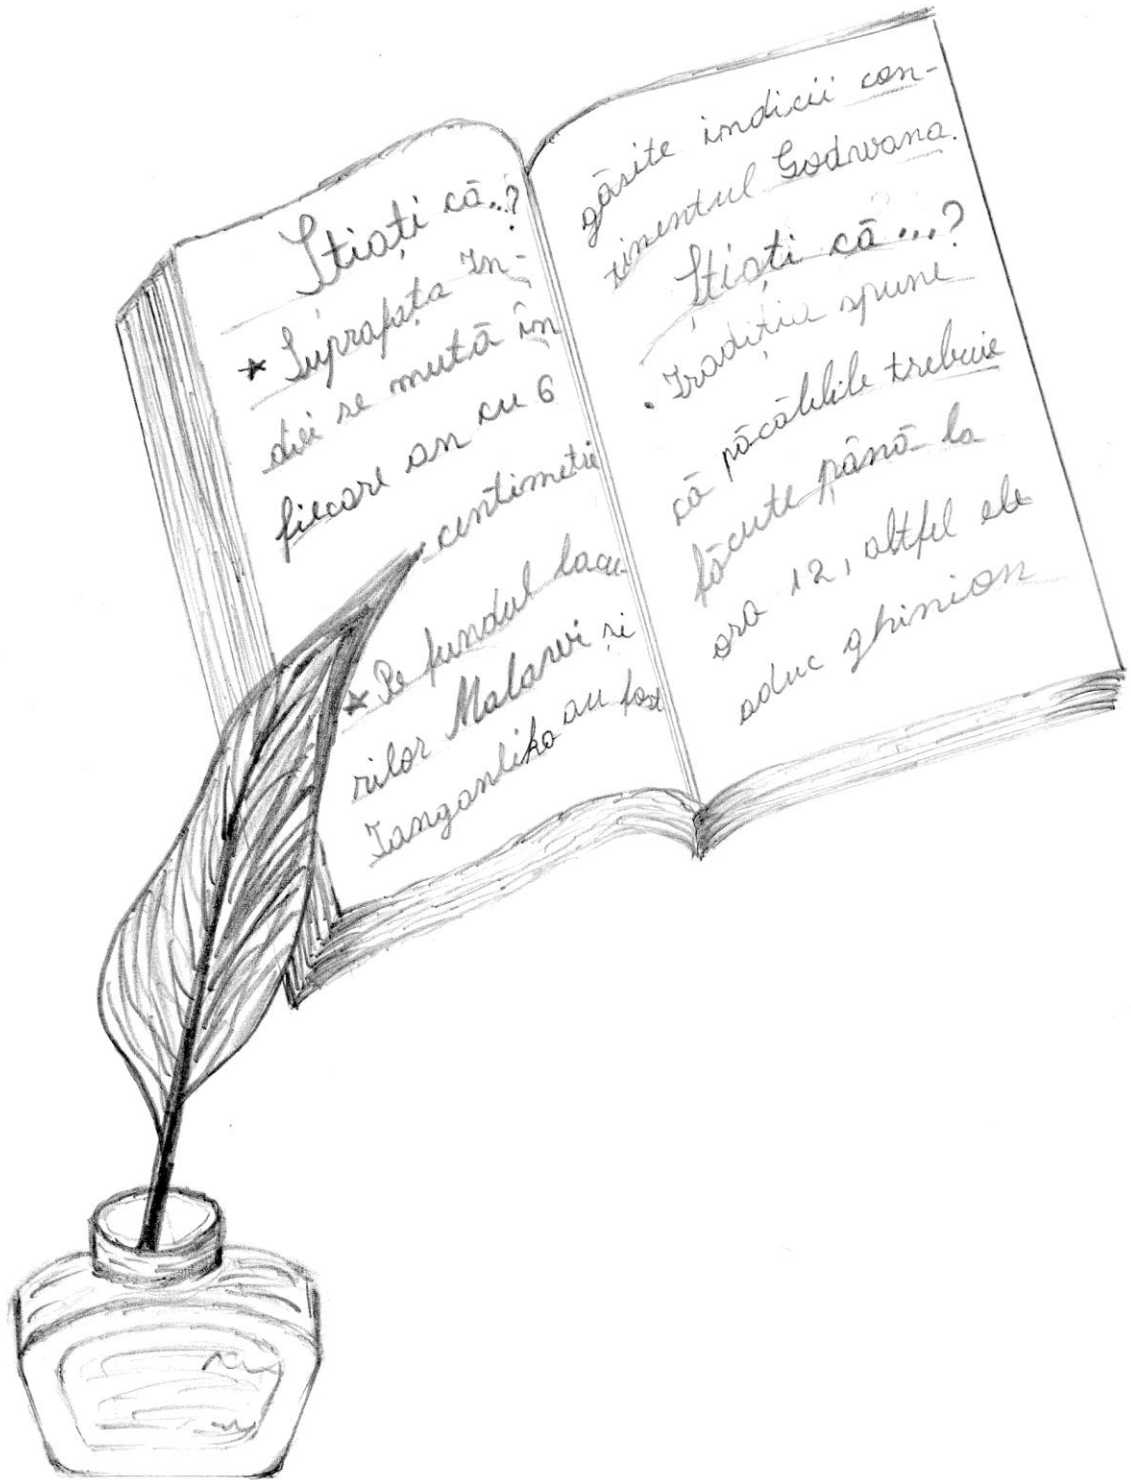 Știați că...?
★ Suprafața In-
diei se mută în
fiecare an cu 6
centimetri
★ Pe fundul lacu-
rilor Malawi și
Tanganlika au fost
găsite indicii con-
tinentul Godwana.
Știați că...?
. Tradiția spune
că păcălelile trebuie
făcute până la
ora 12, altfel ele
aduc ghinion